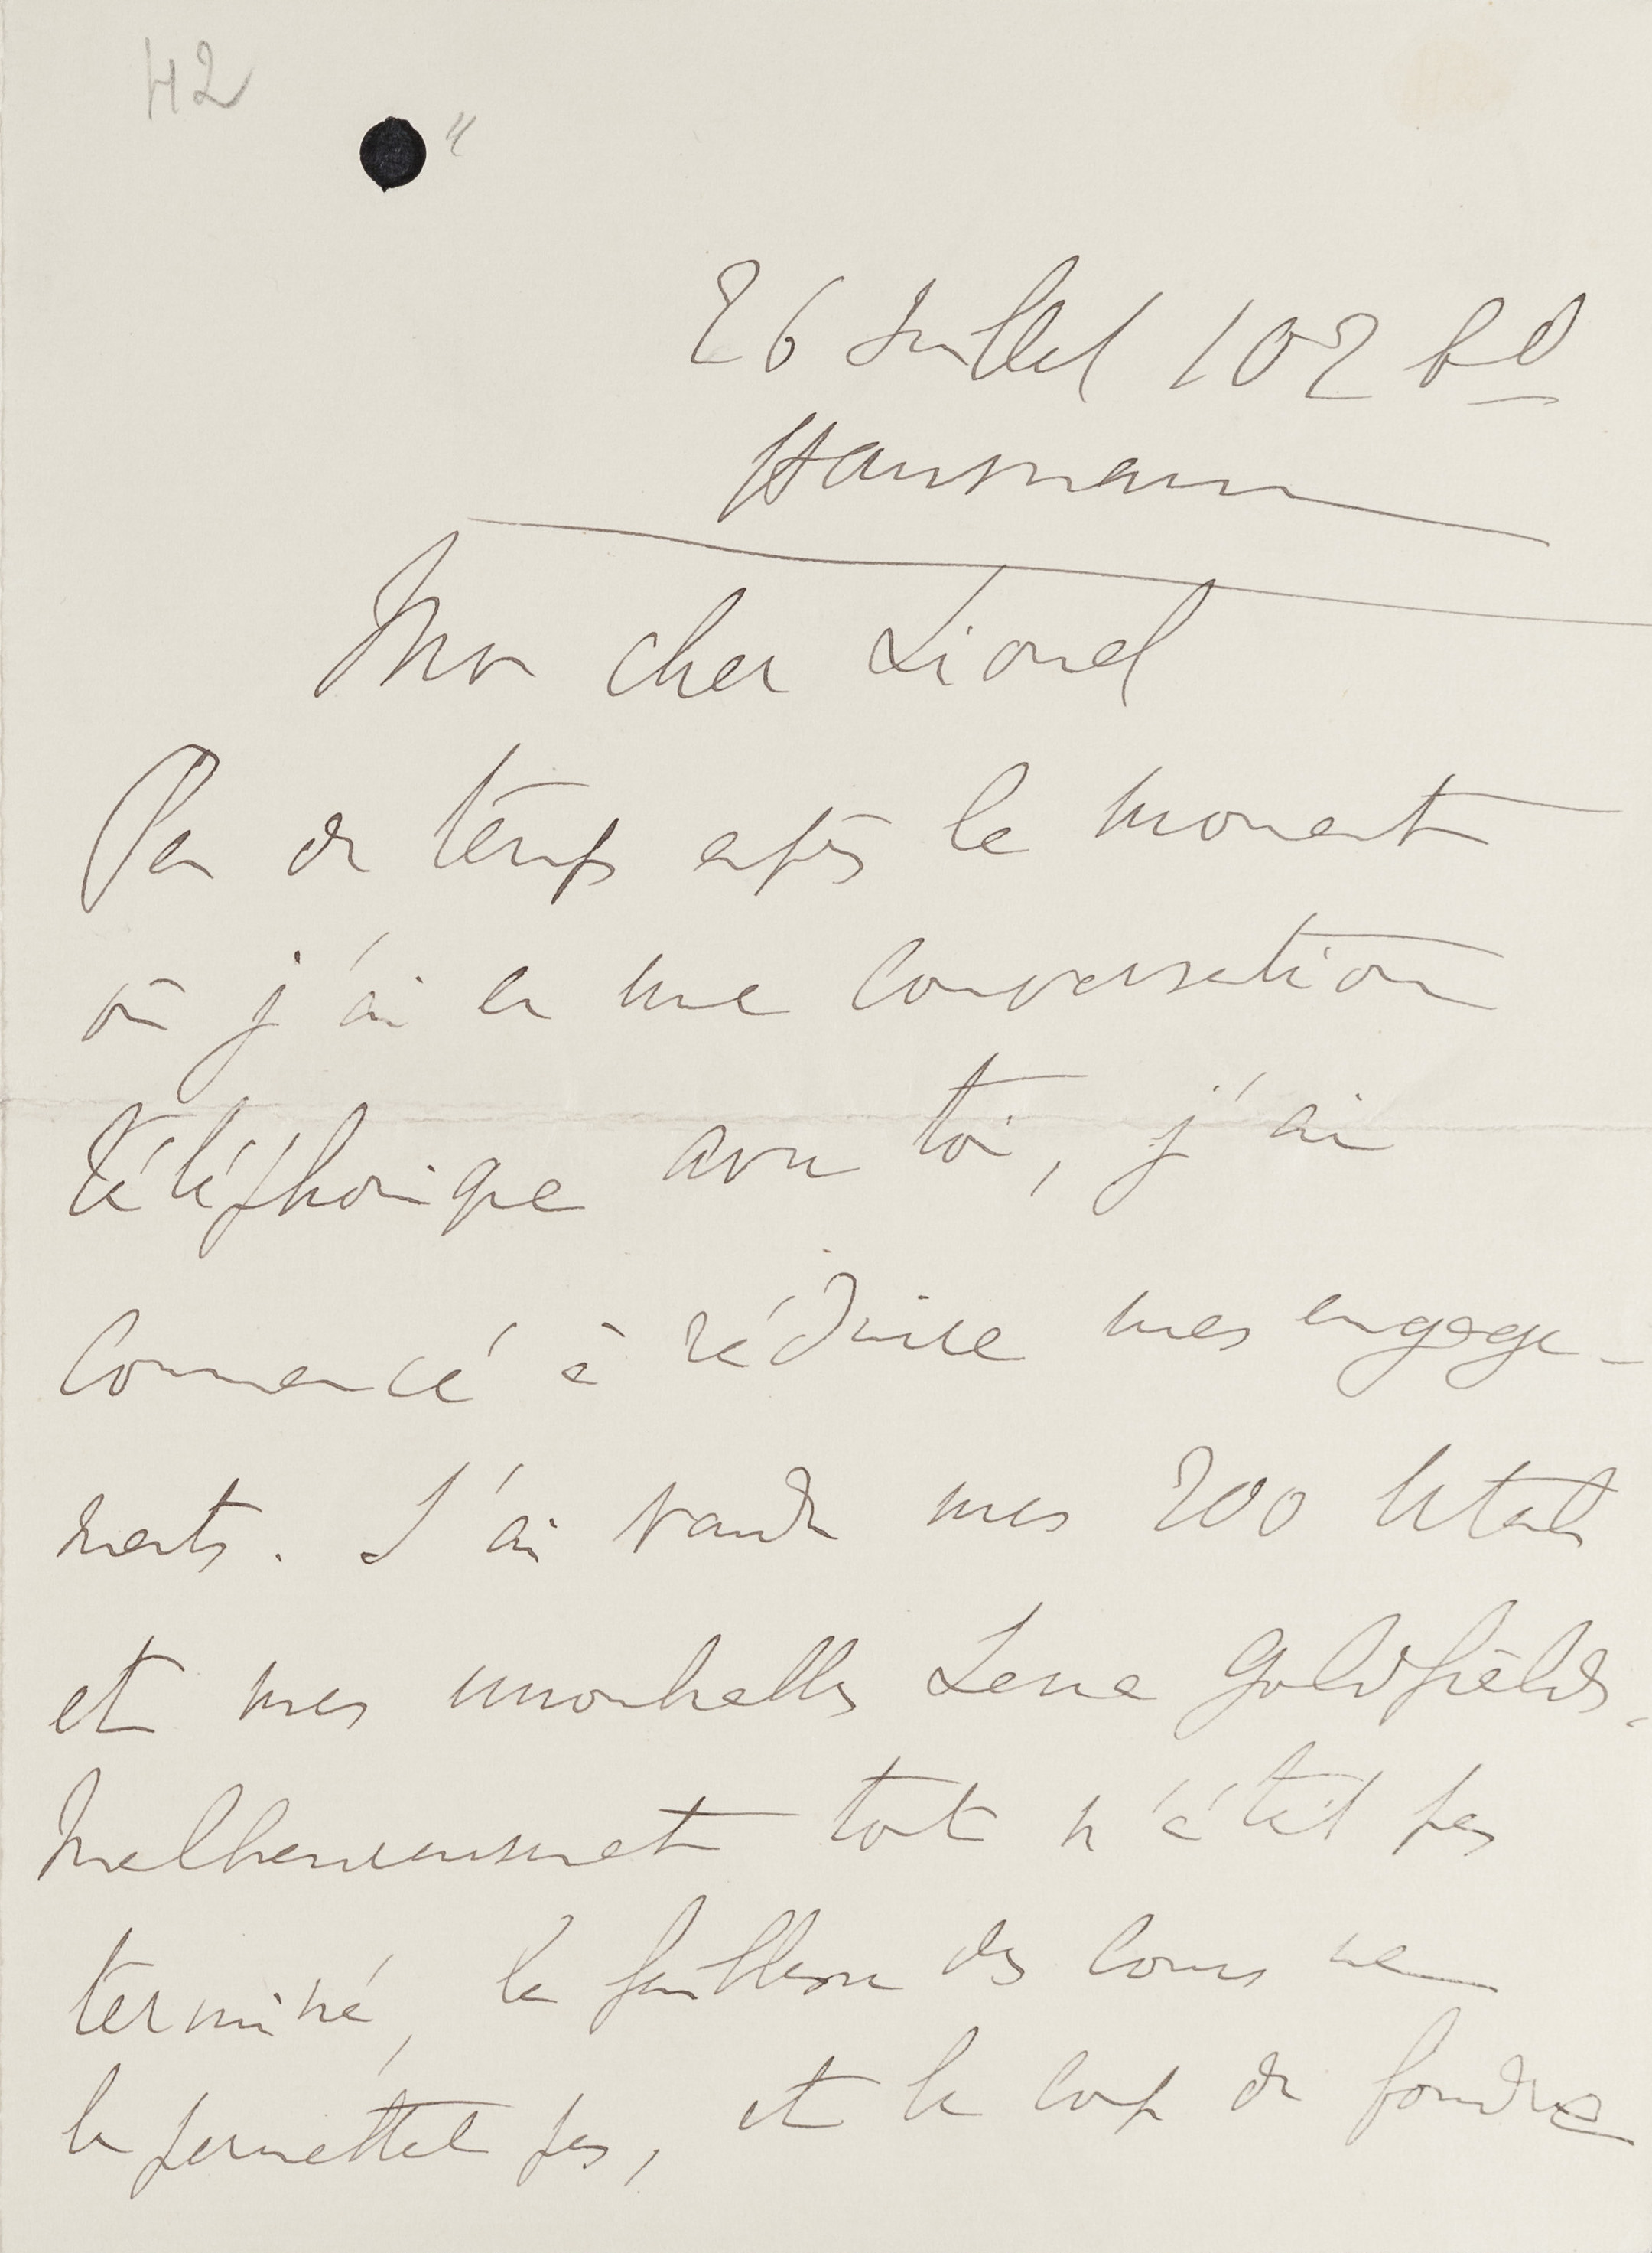 H2
"
26 Juillet 102 bd
Haussmann
Mon cher Lionel
Peu de temps après le moment
où j'ai eu une conversation
téléphonique avec toi, j'ai
commencé à réduire mes engage-
ments. J'ai vendu mes 200 Utah
et mes innombrables Lena Goldfields.
Malheureusement tout n'était pas
terminé, la faiblesse des cours ne
le permettait pas, et le coup de foudre